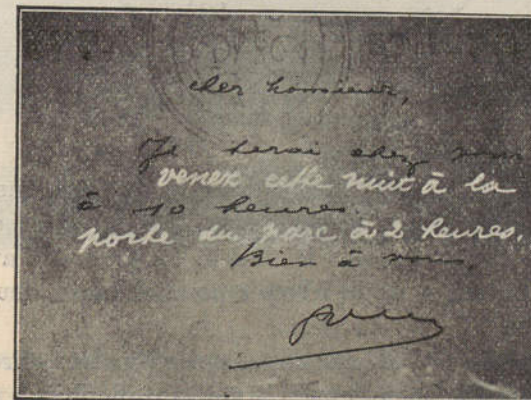 cher Monsieur,
Je serai chez vous
venez cette nuit à la
à 10 heures.
porte du parc à 2 heures.
Bien à vous